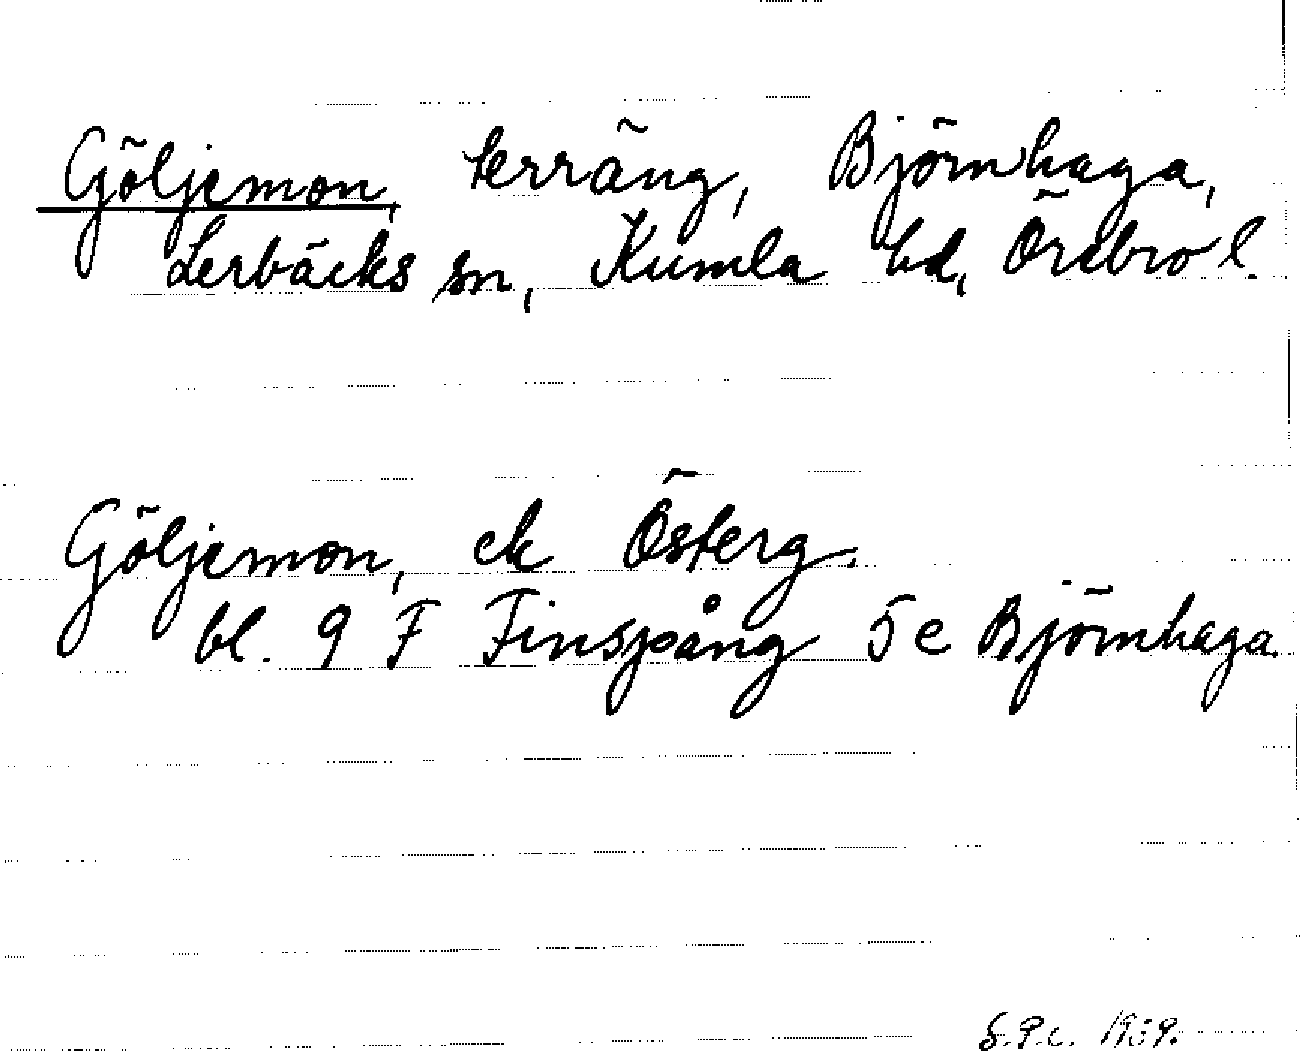 Göljemon, terräng, Björnhaga,
Lerbäcks sn, Kumla hd, Örebro l.
Göljemon, ek Österg.
bl. 9 F Finspång 5 e Björnhaga.